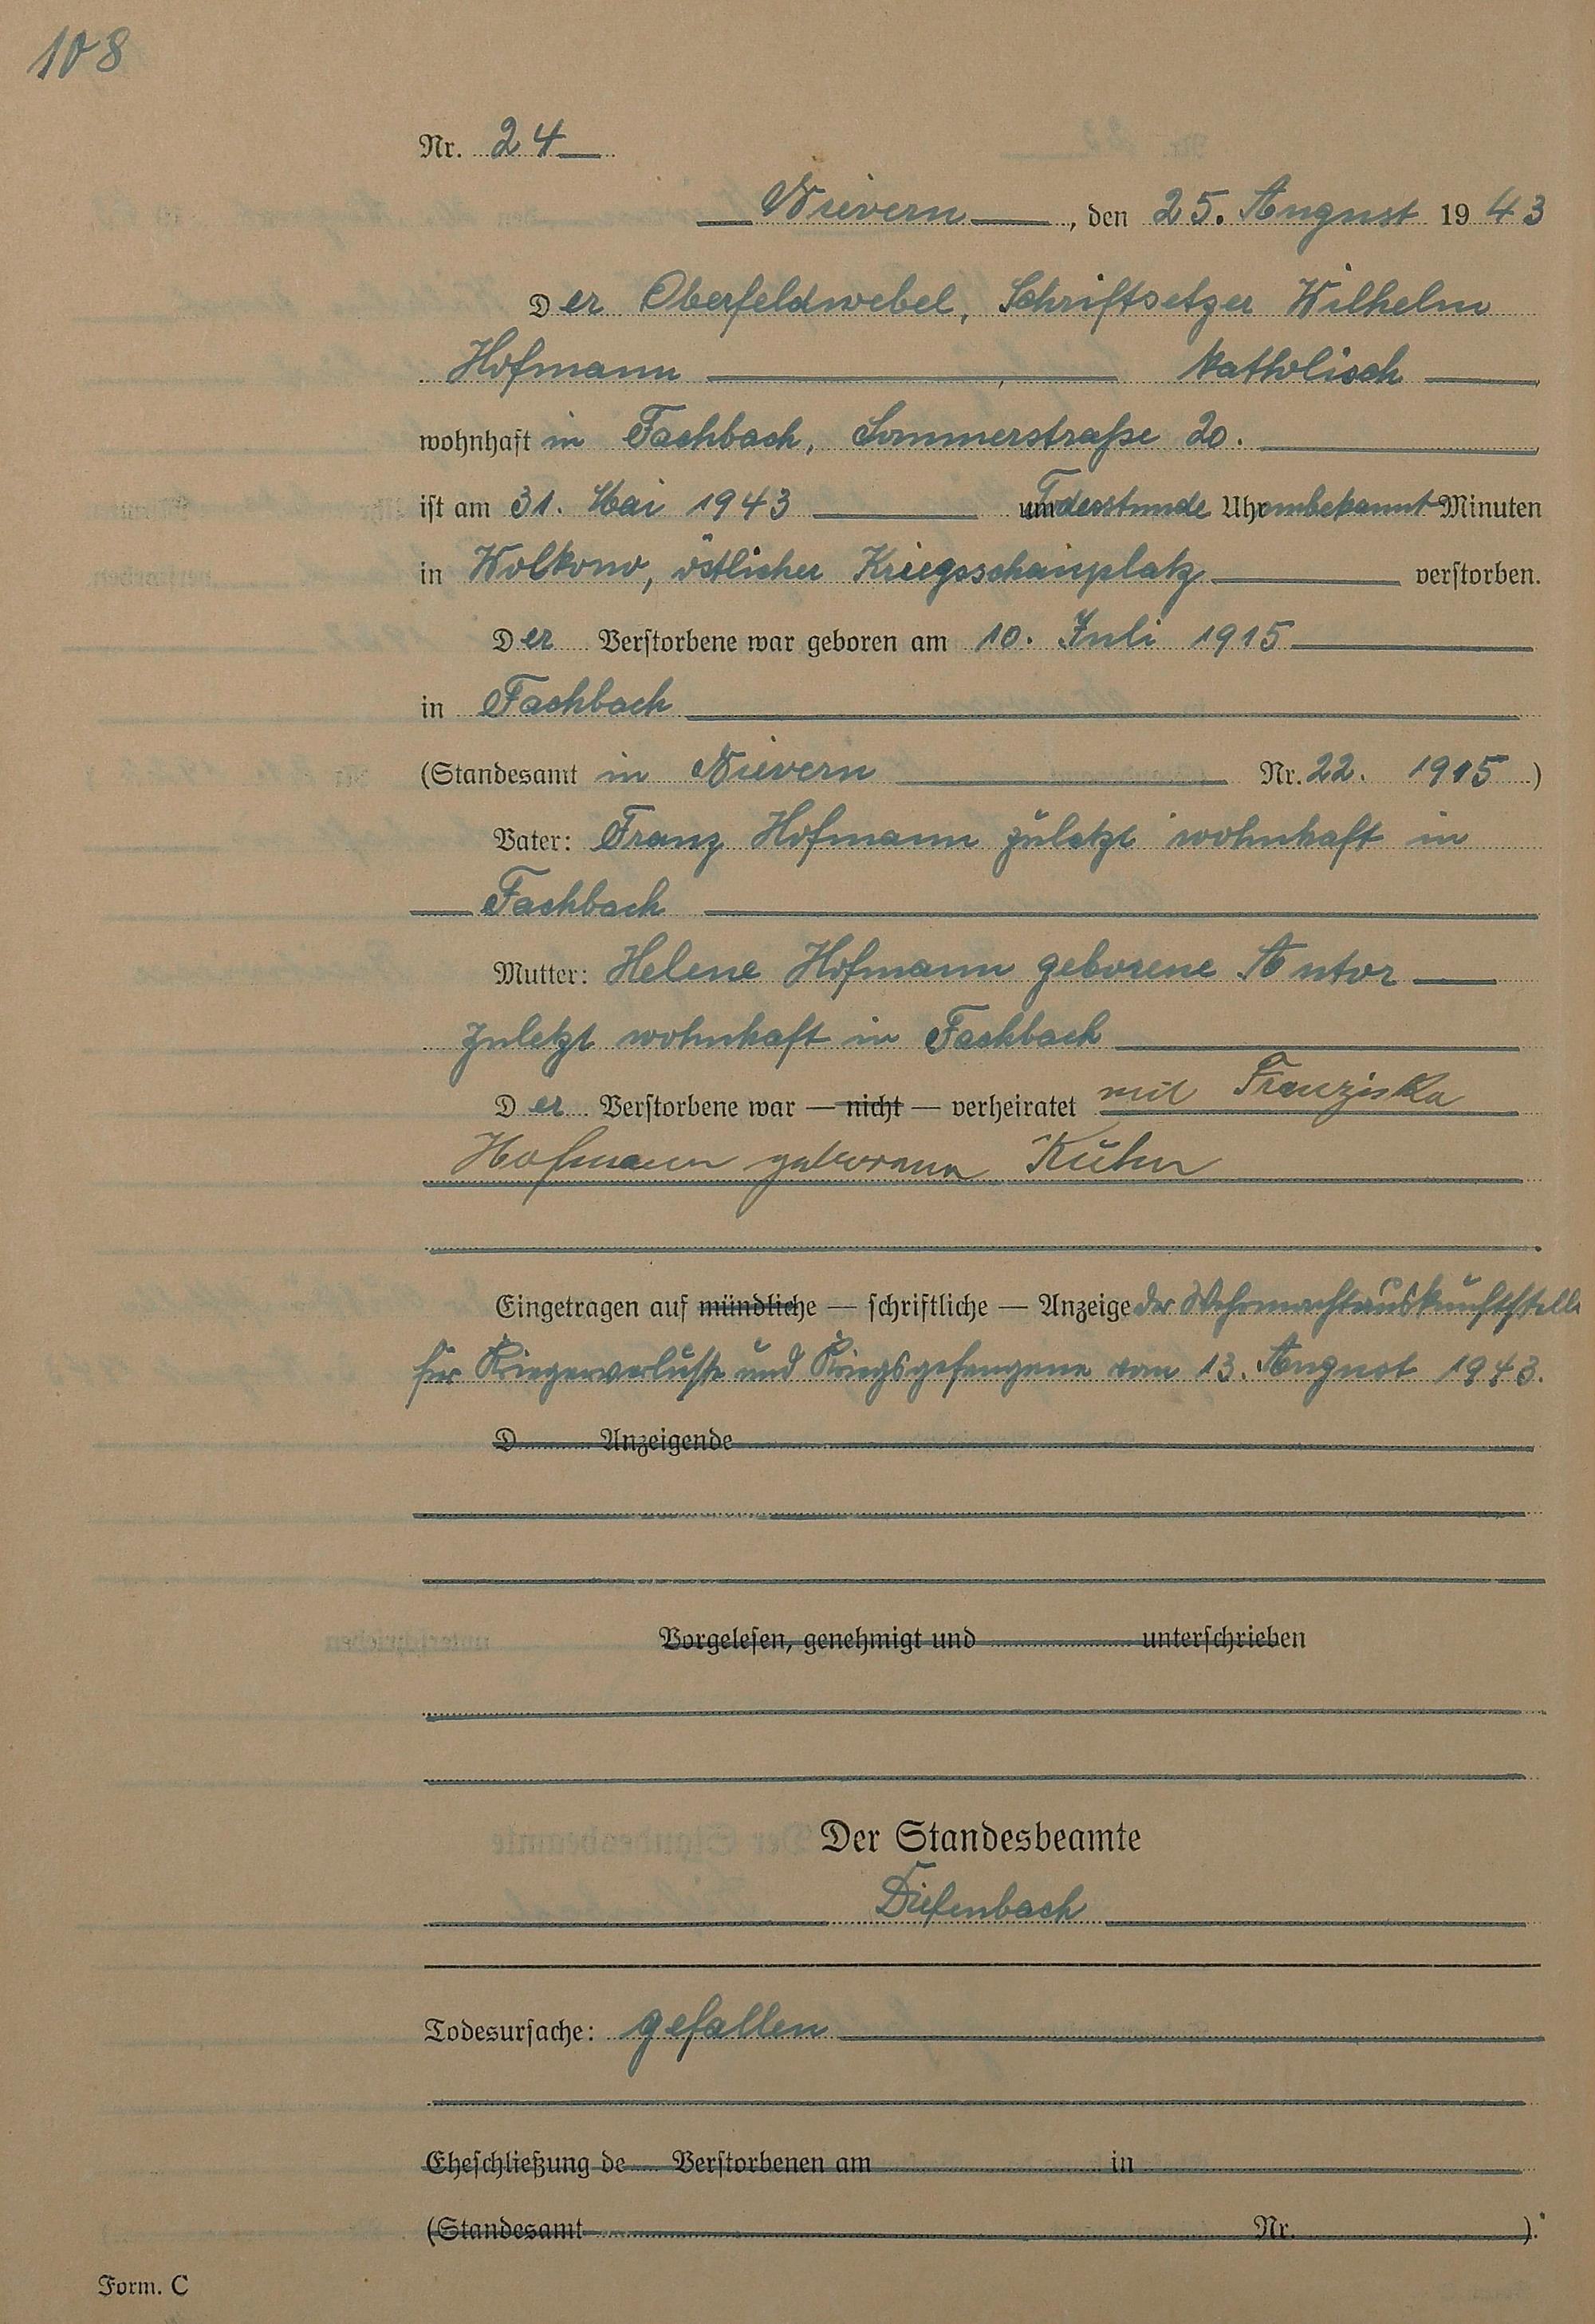 108
Nr. 24
Nievern, den 25. August 1943
Der Oberfeldwebel, Schriftsetzer Wilhelm
Hofmann katholisch
wohnhaft in Fachbach, Sommerstraße 20.
ist am 31. Mai 1943 um Todesstunde Uhr unbekannt Minuten
in Wolkowo, östlicher Kriegsschauplatz verstorben.
Der Verstorbene war geboren am 10. Juli 1915
in Fachbach
(Standesamt in Nievern Nr. 22. 1915)
Vater: Franz Hofmann zuletzt wohnhaft in
Fachbach
Mutter: Helene Hofmann geborene Autor
zuletzt wohnhaft in Fachbach
Der Verstorbene war — nicht — verheiratet mit Franziska
Hofmann geborene Kühn
Eingetragen auf mündliche — schriftliche — Anzeige der Wehrmachtauskunftstelle
für Kriegerverluste und Kriegsgefangene vom 13. August 1943.
D Anzeigende
Vorgelesen, genehmigt und unterschrieben
Der Standesbeamte
Diefenbach
Todesursache: gefallen
Eheschließung de Verstorbenen am in
(Standesamt Nr. ).
Form. C